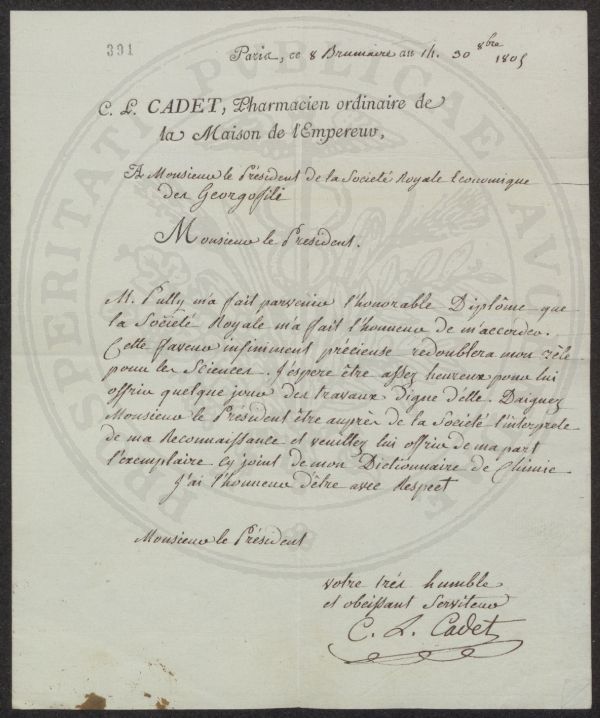 391
Paris, ce 8 Brumaire an 14. 30 8bre 1805
C. L. CADET, Pharmacien ordinaire de
la Maison de l'Empereur,
A Monsieur le Président de la Société Royale Economique
des Georgofili
Monsieur le President.
M. Pully m'a fait parvenir l'honorable Diplôme que
la Société Royale m'a fait l'honneur de m'accorder.
Cette faveur infiniment précieuse redoublera mon zèle
pour les Sciences. J'espere être assez heureux pour lui
offrir quelque jour des travaux digne d'elle. Daignez
Monsieur le Président être auprès de la Société l'interprete
de ma Reconnaissance et veuillez lui offrir de ma part
l'exemplaire cy joint de mon Dictionnaire de Chimie
J'ai l'honneur d'être avec Respect
Monsieur le Président
votre très humble
et obeissant Serviteur
C. L. Cadet
PROSPERITATI PUBLICAE AUGENDAE